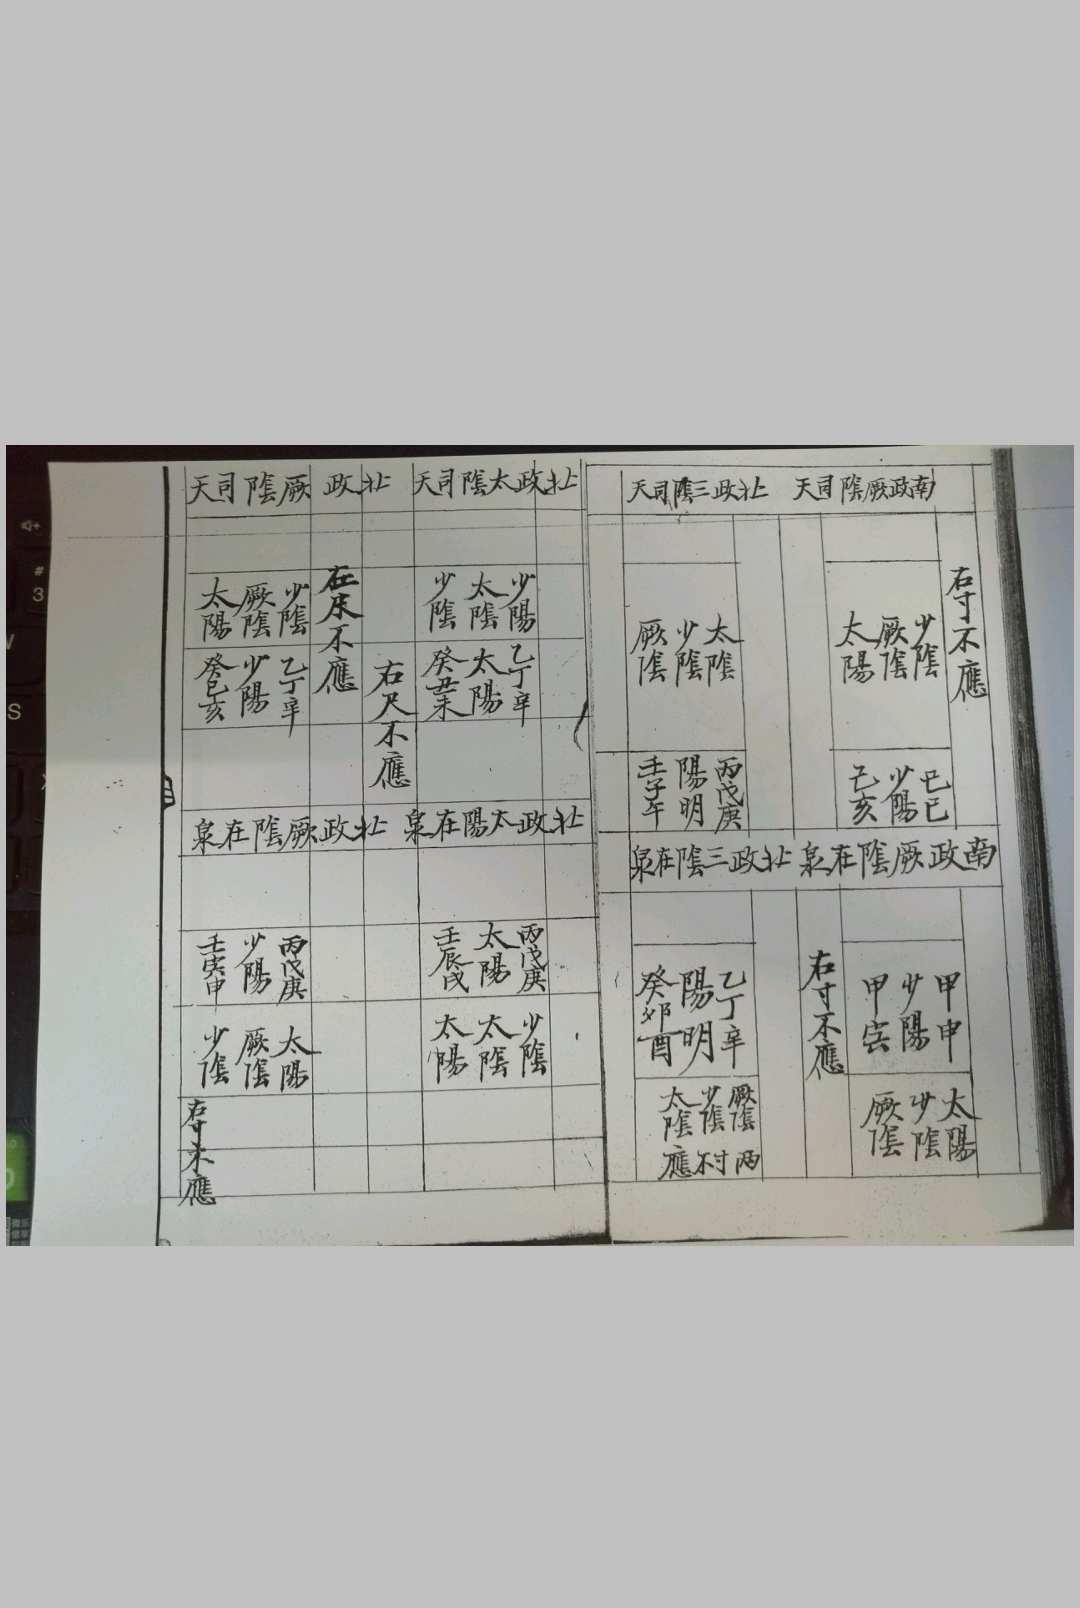 南政厥陰司天
北政三陰司天
右寸不應
少陰
厥陰
太陽
巳巳
少陽
己亥
太陰
少陰
厥陰
丙戊庚
陽明
壬子午
南政厥陰在泉
北政三陰在泉
甲申
少陽
甲寅
太陽
少陰
厥陰
右寸不應
乙丁辛
陽明
癸卯酉
厥陰
少陰
太陰
兩寸不應
北政太陰司天
北政厥陰司天
少陽
太陰
少陰
乙丁辛
太陽
癸丑未
右尺不應
在尺不應
少陰
厥陰
太陽
乙丁辛
少陽
癸巳亥
北政太陽在泉
北政厥陰在泉
丙戊庚
太陽
壬辰戌
少陰
太陰
太陽
丙戊庚
少陽
壬寅申
太陽
厥陰
少陰
右寸不應